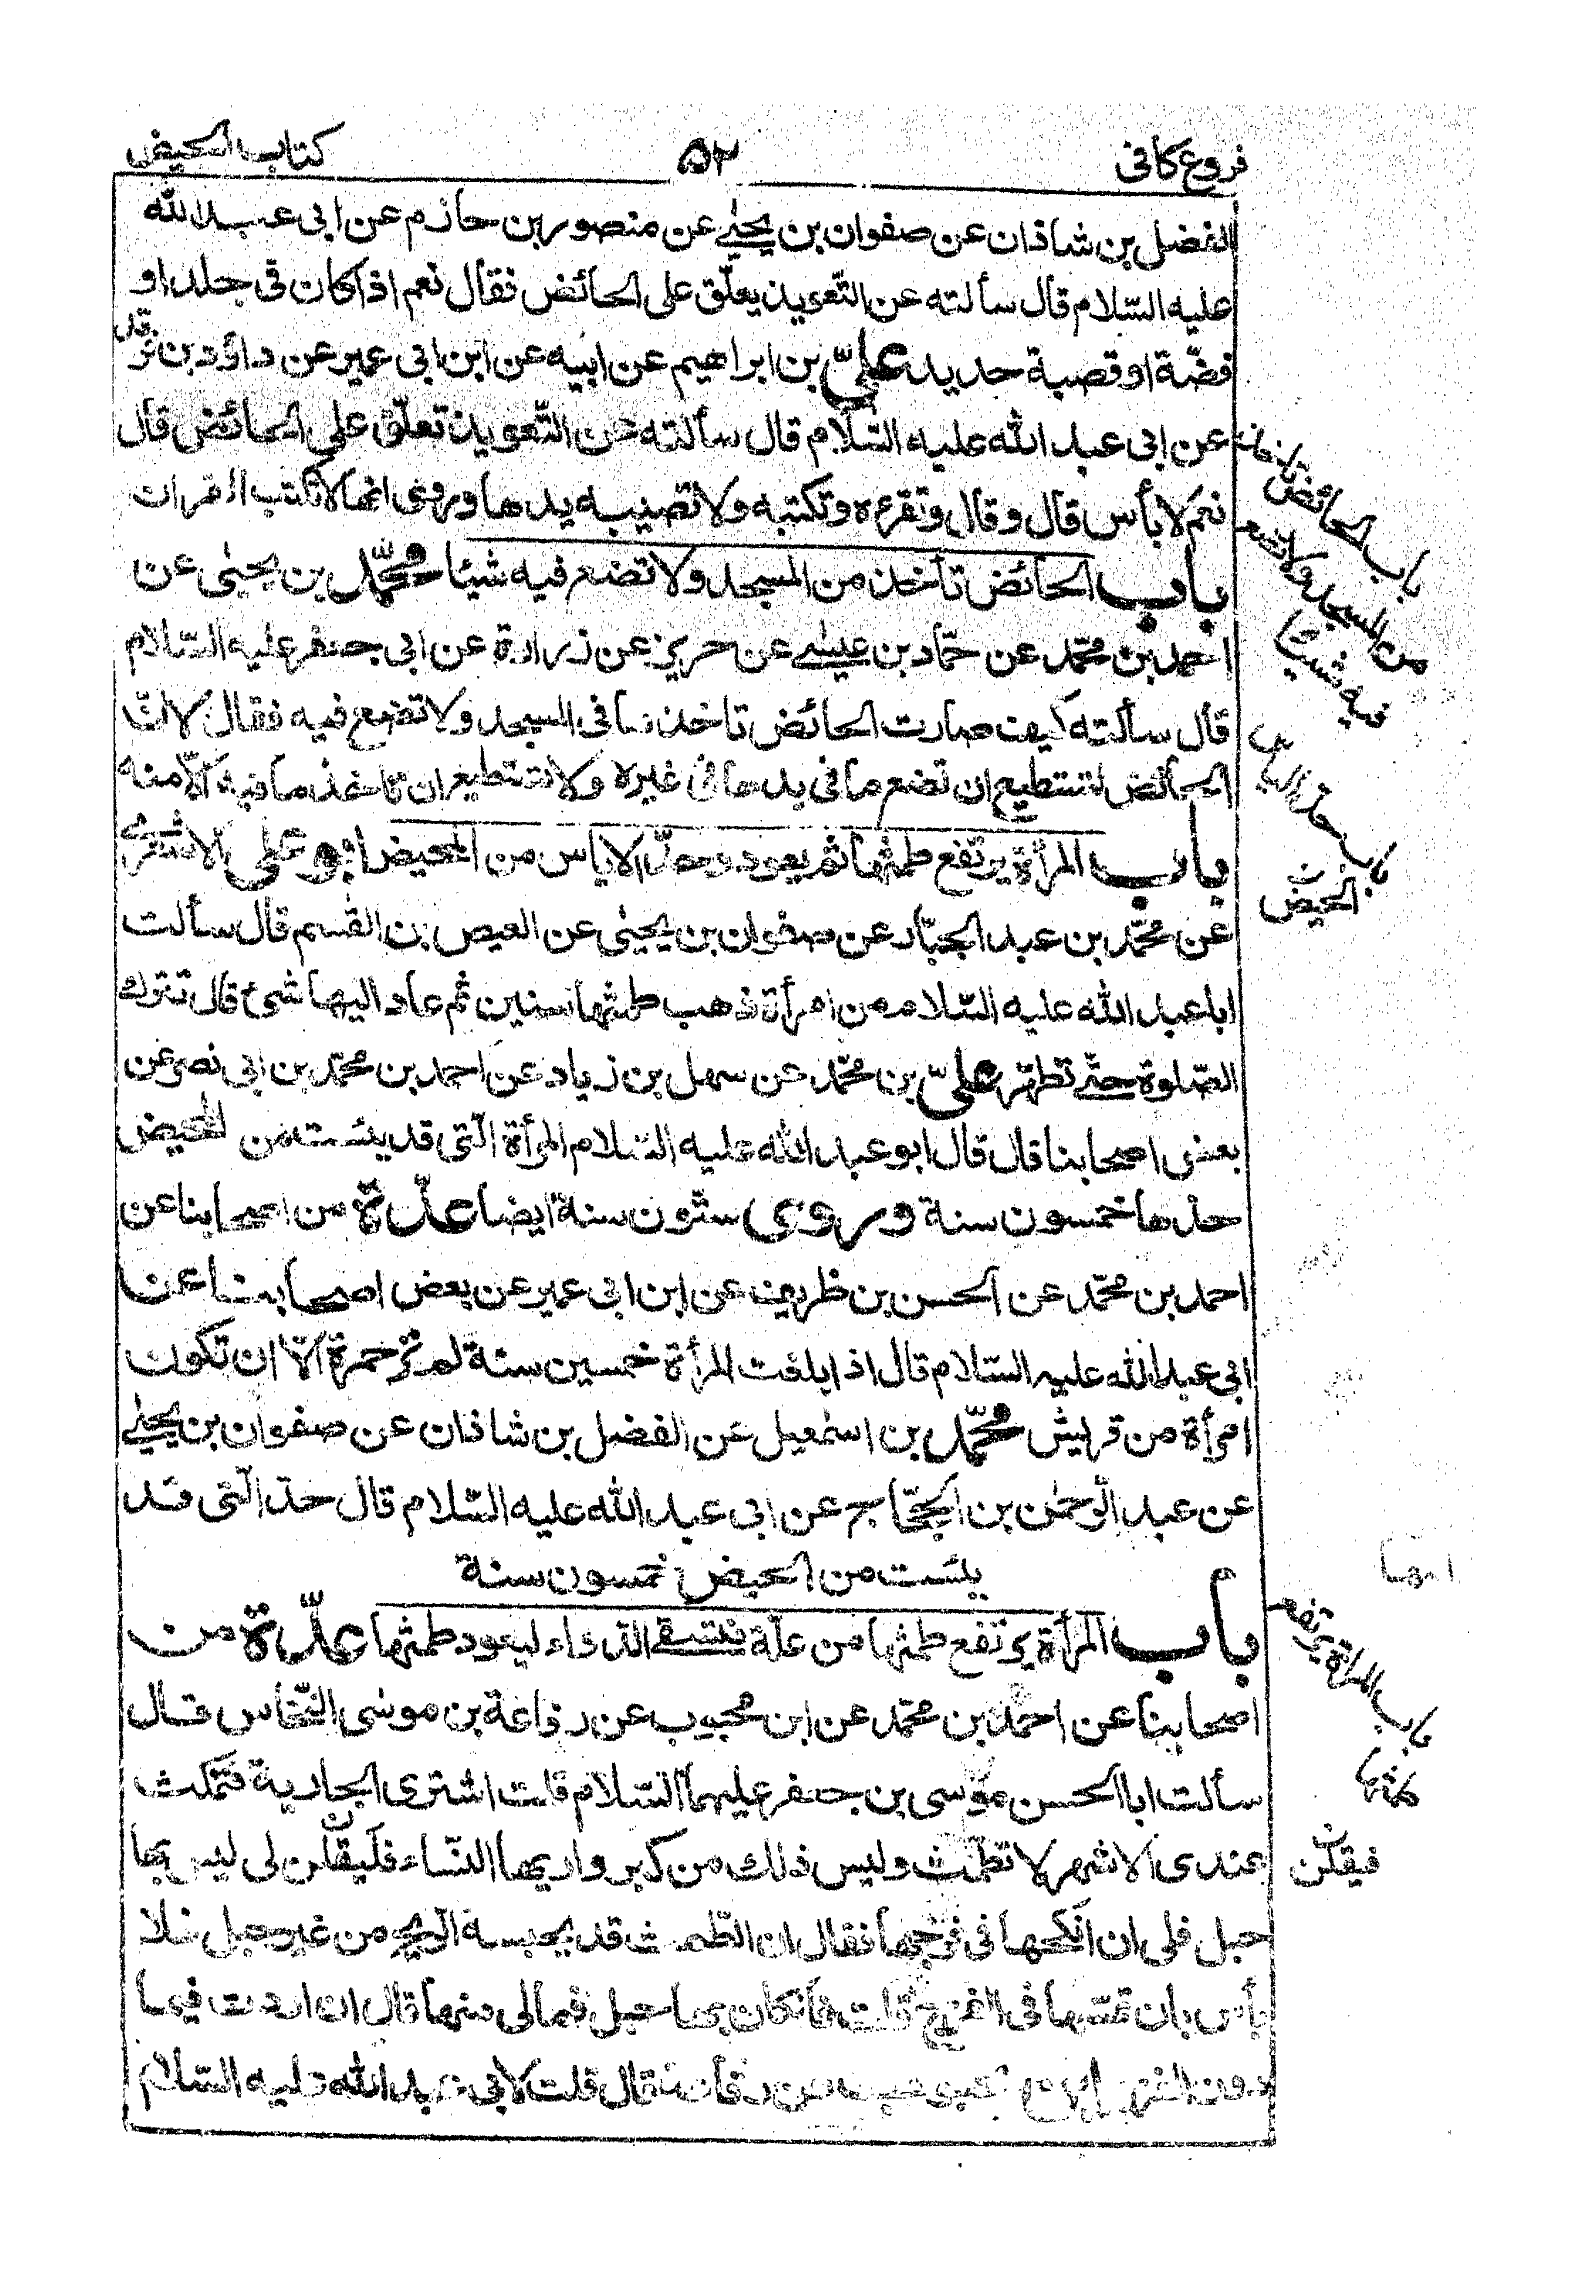 فروع كافى
٥٢
كتاب الحيض
الفضل بن شاذان عن صفوان بن يحيٰى عن منصور بن حازم عن ابى عبد الله
عليه السّلام قال سألته عن التّعويذ يعلّق على الحائض فقال نعم اذا كان فى جلد او
فضّة او قصبة حديد علىّ بن ابراهيم عن ابيه عن ابن ابى عمير عن داؤد بن فرقد
عن ابى عبد الله عليه السّلام قال سألته عن التّعويذ تعلّق على الحائض قال
نعم لا بأس قال و قال و تقرءه و تكتبه و لا تصيبه يدها و روى انها لا تكتب القرات
باب الحائض تأخذ من المسجد ولا تضع فيه شيئا محمّد بن يحيٰى عن
احمد بن محمّد عن حمّاد بن عيسٰى عن حريز عن زرارة عن ابى جعفر عليه السّلام
قال سألته كيف صارت الحائض تاخذ ما فى المسجد ولا تضع فيه فقال لانّ
الحائض تستطيع ان تضع ما فى يدها فى غيره ولا تستطيع ان تاخذ ما فيه الّا منه
باب المرأة يرتفع طمثها ثم يعود وحدّ الاياس من المحيض ابو على الاشعرى
عن محمّد بن عبد الجبّار عن صفوان بن يحيٰى عن العيص بن القٰسم قال سألت
ابا عبد الله عليه السّلام من امرأة ذهب طمثها سنين ثم عاد اليها شئ قال تترك
الصّلوة حتّى تطهر علىّ بن محمّد عن سهل بن زياد عن احمد بن محمّد بن ابى نصر عن
بعض اصحابنا قال قال ابو عبد الله عليه السّلام المرأة الّتى قد يئست من المحيض
حدّها خمسون سنة وروى ستّون سنة ايضا عدّة من اصحابنا عن
احمد بن محمّد عن الحسن بن ظريف عن ابن ابى عمير عن بعض اصحابنا عن
ابى عبد الله عليه السّلام قال اذا بلغت المرأة خمسين سنة لم تر حمرة الّا ان تكون
امرأة من قريش محمّد بن اسمٰعيل عن الفضل بن شاذان عن صفوان بن يحيٰى
عن عبد الرّحمٰن بن الحجّاج عن ابى عبد الله عليه السّلام قال حدّ الّتى قد
يئست من الحيض خمسون سنة
باب المرأة يرتفع طمثها من علّة فتسقى الدّواء ليعود طمثها عدّة من
اصحابنا عن احمد بن محمّد عن ابن محبوب عن رفاعة بن موسٰى النّخّاس قال
سألت ابا الحسن موسى بن جعفر عليهما السّلام قلت اشترى الجارية فتمكث
عندى الاشهر لا تطمث وليس ذلك من كبر واريها النّساء فليقلن لى ليس بها
حبل فلى ان انكحها فى فرجها فقال ان الطّمث قد يحبسه الرّيح من غير حبل فلا
بأس بان تمسّها فى الفرج قلت فان كان بها حبل فما لى منها قال ان اردت فيما
دون الفرج قال قلت لابى عبد الله عليه السّلام
باب الحائض تاخذ
من المسجد ولا تضع
فيه شيئا
باب حدّ الياس
الحيض
باب المرأة يرتفع
طمثها
فيقلن